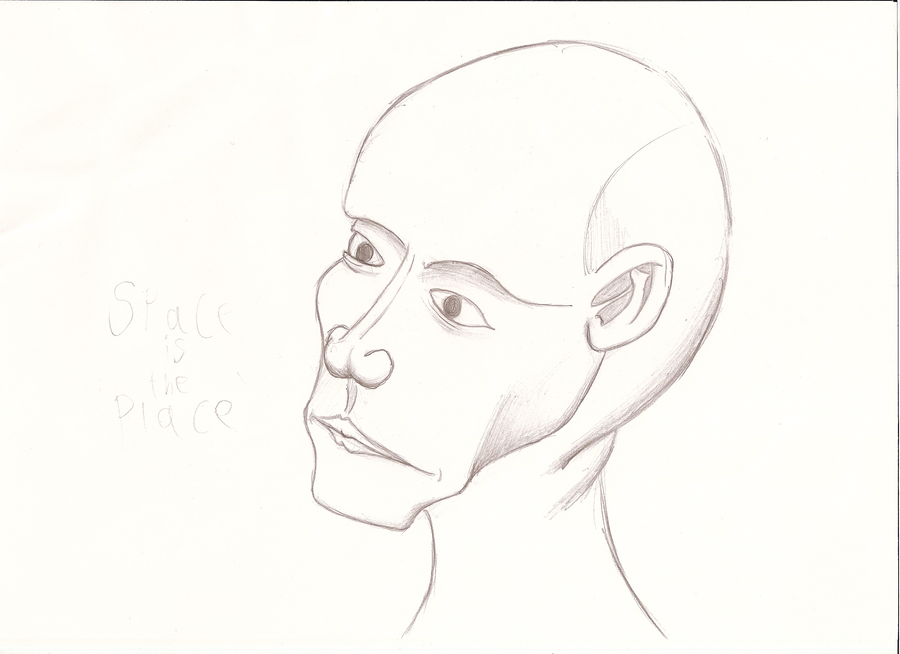 Space
is
the
Place